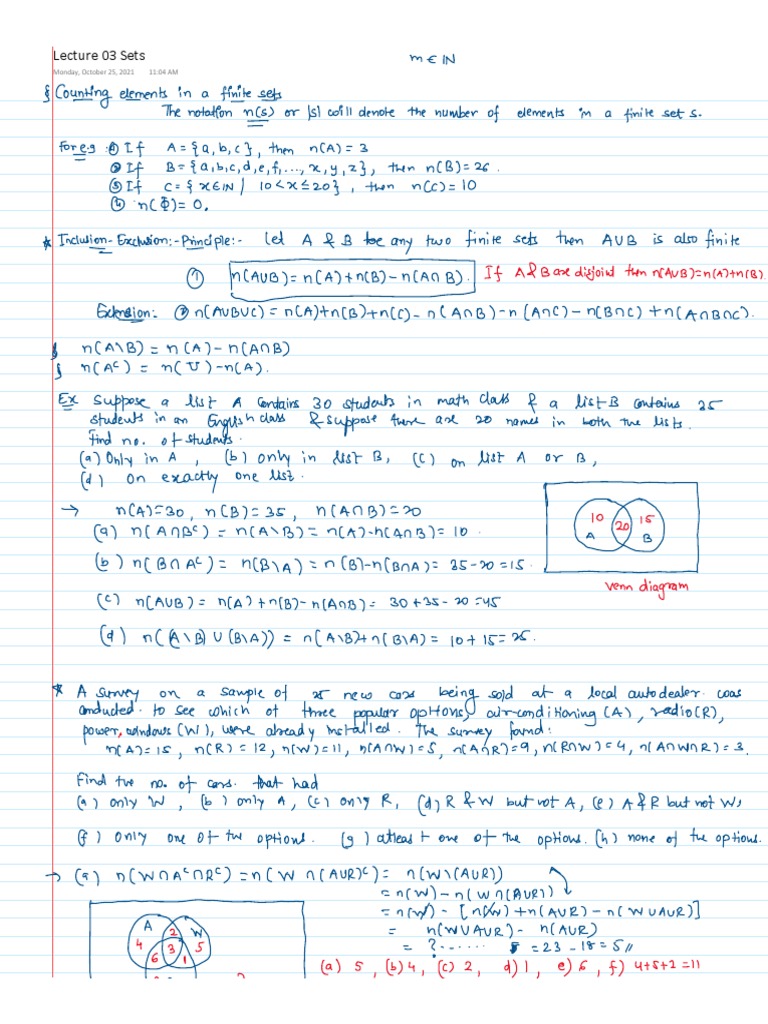 Lecture 03 Sets
m ∈ IN
Monday, October 25, 2021 11:04 AM
§ Counting elements in a finite sets
The notation n(s) or |s| will denote the number of elements in a finite set s.
for e.g. ① If A = {a, b, c}, then n(A) = 3
② If B = {a, b, c, d, e, f, ..., x, y, z}, then n(B) = 26.
③ If C = {x ∈ IN | 10 < x ≤ 20}, then n(C) = 10
④ n(Φ) = 0.
* Inclusion-Exclusion:-Principle:- Let A & B be any two finite sets then A∪B is also finite
① n(A∪B) = n(A)+n(B)-n(A∩B). If A & B are disjoint then n(A∪B)=n(A)+n(B).
Extension: ② n(A∪B∪C) = n(A)+n(B)+n(C)-n(A∩B)-n(A∩C)-n(B∩C)+n(A∩B∩C).
§ n(A\B) = n(A)-n(A∩B)
§ n(Aᶜ) = n(U)-n(A).
Ex Suppose a list A contains 30 students in math class & a list B contains 25
students in an English class & suppose there are 20 names in both the lists.
Find no. of students.
(a) Only in A, (b) only in list B, (c) on list A or B,
(d) on exactly one list.
→ n(A)=30, n(B)=35, n(A∩B)=20
(a) n(A∩Bᶜ) = n(A\B) = n(A)-n(A∩B) = 10.
(b) n(B∩Aᶜ) = n(B\A) = n(B)-n(B∩A) = 35-20 = 15.
10 20 15
A B
venn diagram
(c) n(A∪B) = n(A)+n(B)-n(A∩B) = 30+35-20 = 45
(d) n((A\B)∪(B\A)) = n(A\B)+n(B\A) = 10+15 = 25.
* A survey on a sample of 25 new cars being sold at a local autodealer. was
conducted. to see which of three popular options, air-conditioning (A), radio(R),
power, windows (W), were already installed. The survey found:
n(A)=15, n(R)=12, n(W)=11, n(A∩W)=5, n(A∩R)=9, n(R∩W)=4, n(A∩W∩R)=3.
Find the no. of cars. that had
(a) only W, (b) only A, (c) only R, (d) R & W but not A, (e) A & R but not W,
(f) only one of the options. (g) atleast one of the options. (h) none of the options.
→ (a) n(W∩Aᶜ∩Rᶜ) = n(W∩(A∪R)ᶜ) = n(W\(A∪R))
= n(W)-n(W∩(A∪R))
= n(W)-[n(W)+n(A∪R)-n(W∪A∪R)]
= n(W∪A∪R)-n(A∪R)
= ?...... = 23-18 = 5
A 2 W
4 3 5
6 1
(a) 5, (b) 4, (c) 2, d) 1, e) 6, f) 4+5+2=11